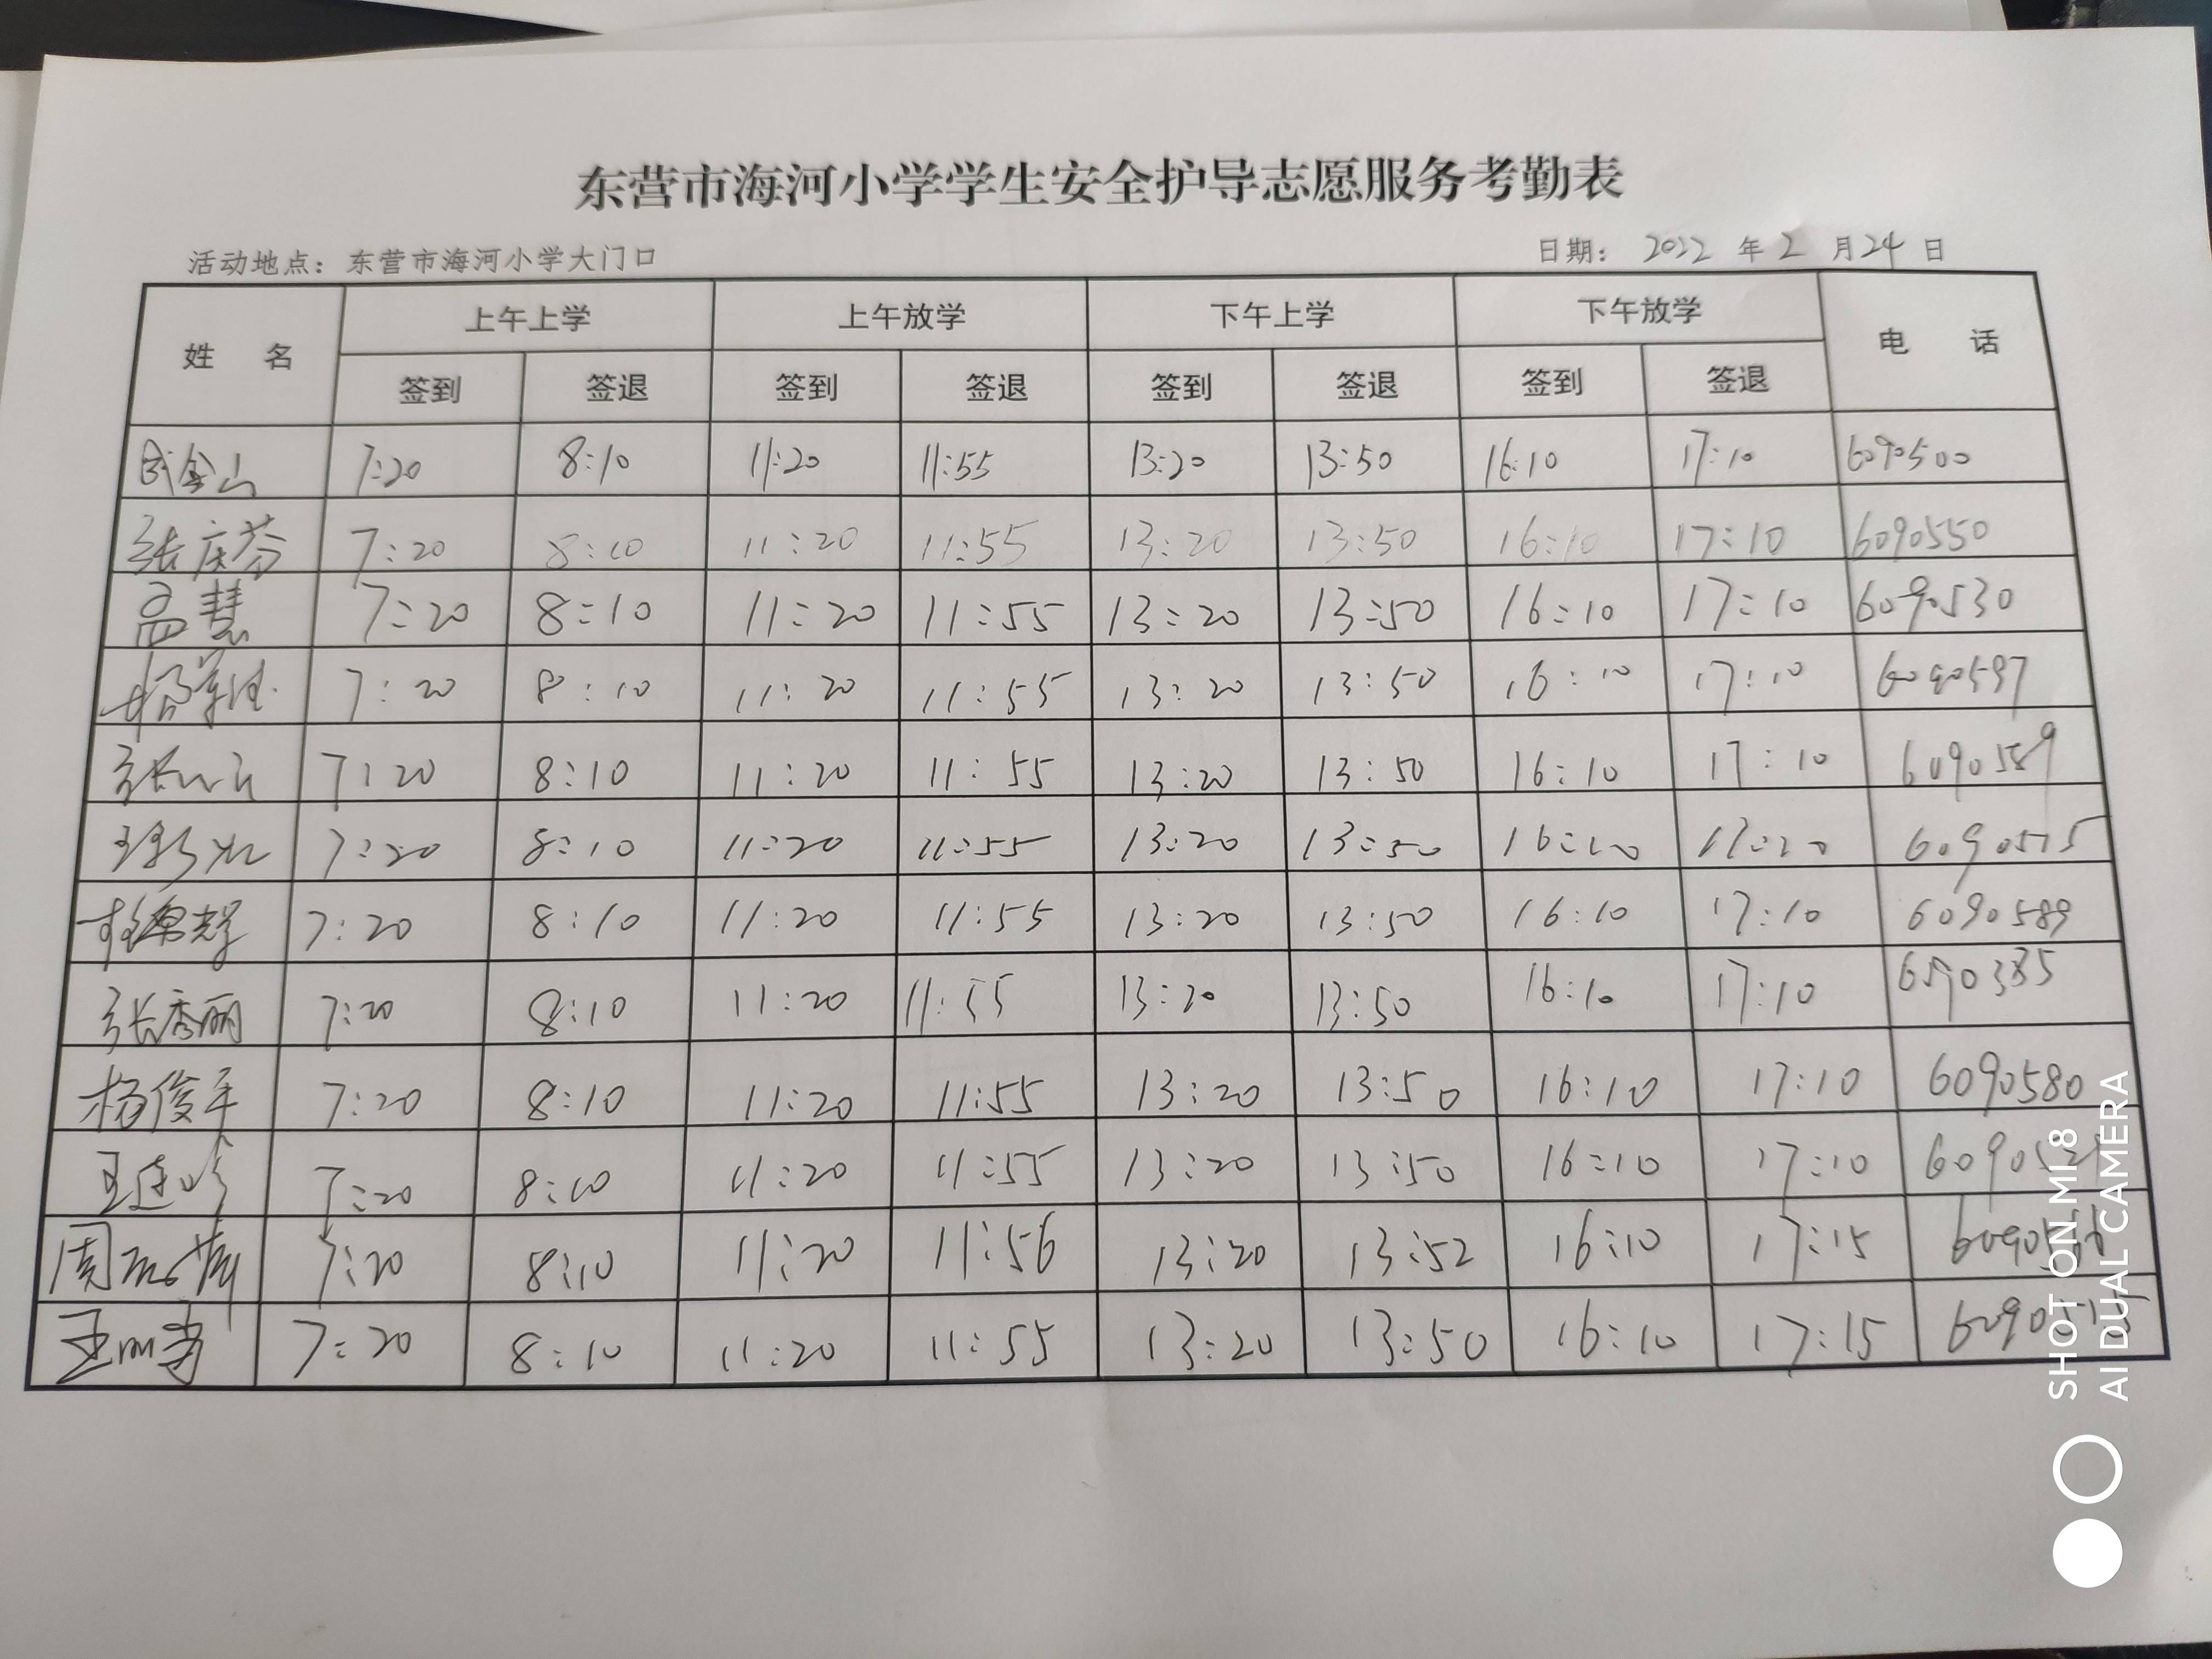 东营市海河小学学生安全护导志愿服务考勤表
活动地点：东营市海河小学大门口 日期： 2022 年 2 月 24 日
姓 名 上午上学 上午放学 下午上学 下午放学 电 话
签到 签退 签到 签退 签到 签退 签到 签退
金山 7:20 8:10 11:20 11:55 13:20 13:50 16:10 17:10 6090500
张庆芬 7:20 8:10 11:20 11:55 13:20 13:50 16:10 17:10 6090550
孟慧 7:20 8:10 11:20 11:55 13:20 13:50 16:10 17:10 6090530
杨 7:20 8:10 11:20 11:55 13:20 13:50 16:10 17:10 6090597
张 7:20 8:10 11:20 11:55 13:20 13:50 16:10 17:10 6090589
7:20 8:10 11:20 11:55 13:20 13:50 16:10 17:10 6090575
7:20 8:10 11:20 11:55 13:20 13:50 16:10 17:10 6090589
张秀丽 7:20 8:10 11:20 11:55 13:20 13:50 16:10 17:10
杨俊军 7:20 8:10 11:20 11:55 13:20 13:50 16:10 17:10 6090580
王连 7:20 8:10 11:20 11:55 13:20 13:50 16:10 17:10
周 7:20 8:10 11:20 11:56 13:20 13:52 16:10 17:15
王丽 7:20 8:10 11:20 11:55 13:20 13:50 16:10 17:15
SHOT ON MI 8
AI DUAL CAMERA